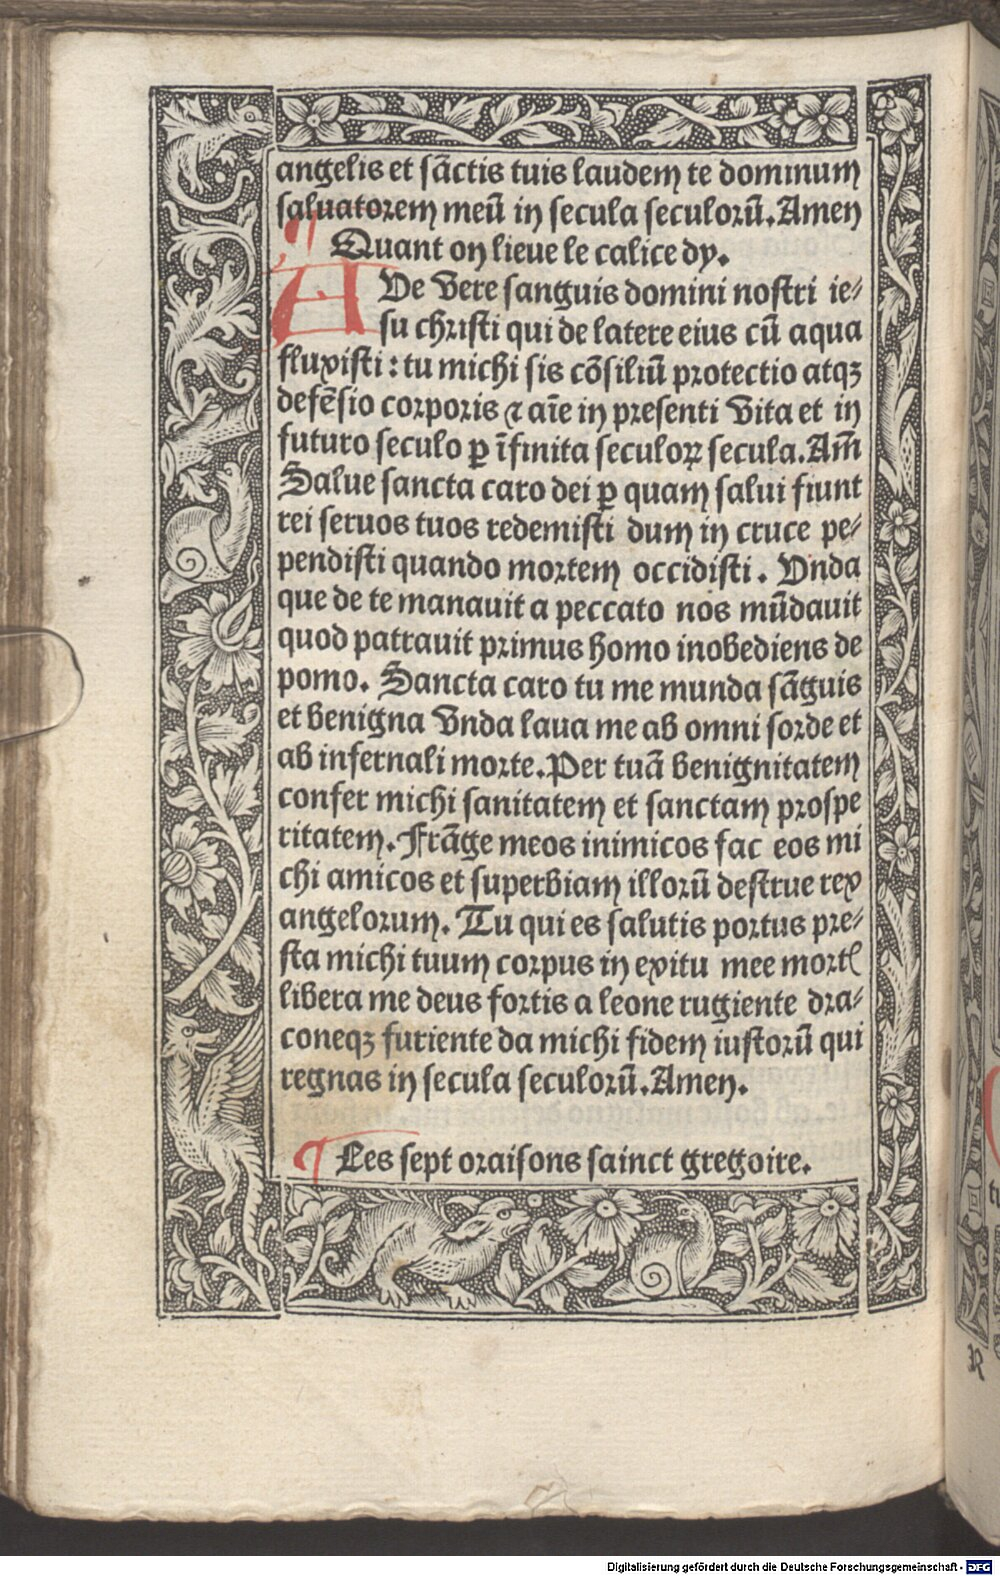 angelis et sãctis tuis laudem te dominum
saluatorem meũ in secula seculorũ. Amen
¶ Quant on lieue le calice dy.
ADe vere sanguis domini nostri ie-
su christi qui de latere eius cũ aqua
fluxisti : tu michi sis cõsiliũ protectio atqꝫ
defẽsio corporis ⁊ aĩe in presenti vita et in
futuro seculo ꝑ ĩfinita seculoꝝ secula. Am̃
Salue sancta caro dei ꝑ quam salui fiunt
rei seruos tuos redemisti dum in cruce pe-
pendisti quando mortem occidisti. Vnda
que de te manauit a peccato nos mũdauit
quod patrauit primus homo inobediens de
pomo. Sancta caro tu me munda sãguis
et benigna vnda laua me ab omni sorde et
ab infernali morte. Per tuã benignitatem
confer michi sanitatem et sanctam prospe
ritatem. Frãge meos inimicos fac eos mi
chi amicos et superbiam illorũ destrue rex
angelorum. Tu qui es salutis portus pre-
sta michi tuum corpus in exitu mee mortꝭ
libera me deus fortis a leone rugiente dra-
coneqꝫ furiente da michi fidem iustorũ qui
regnas in secula seculorũ. Amen.
¶ Les sept oraisons sainct gregoire.
Digitalisierung gefördert durch die Deutsche Forschungsgemeinschaft - DFG